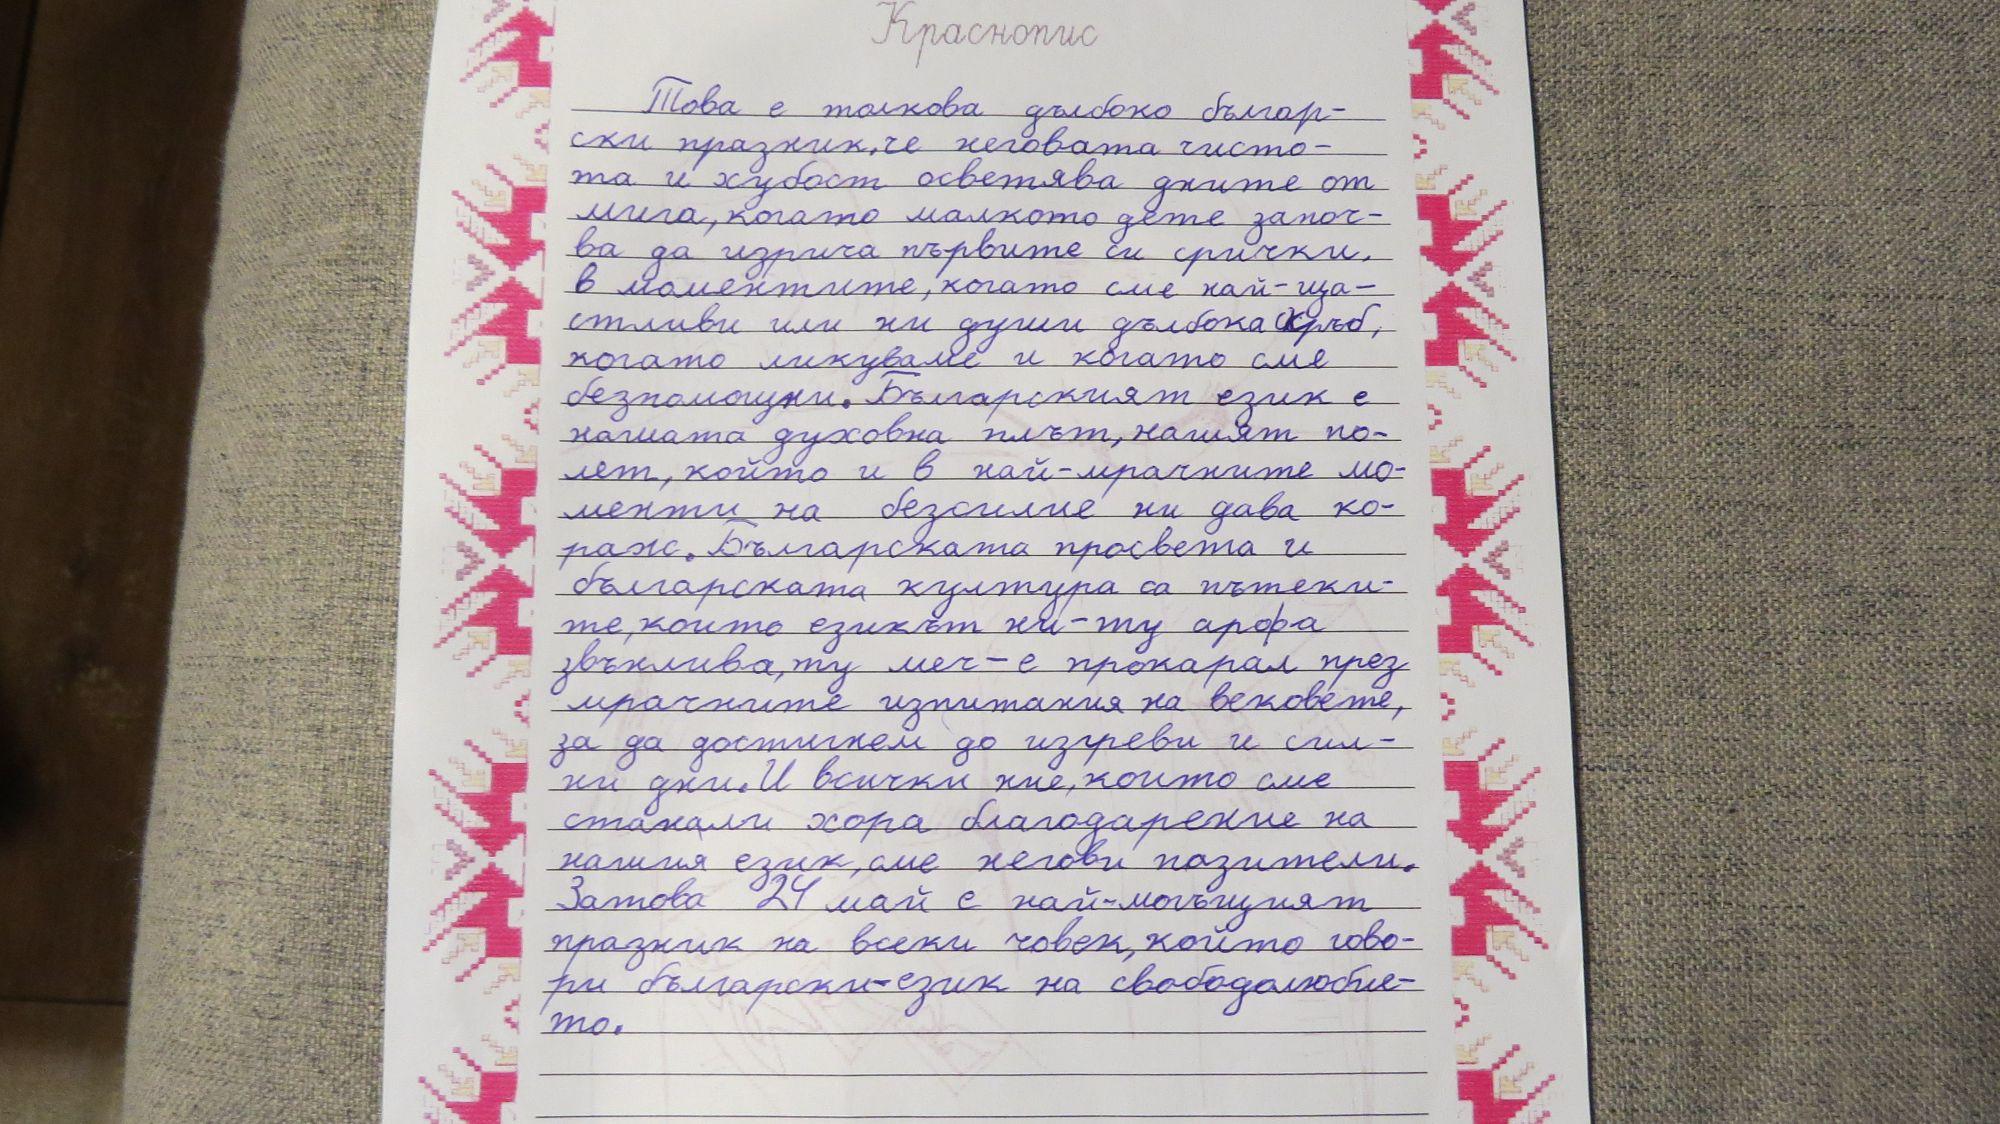 Краснопис
Това е толкова дълбоко българ-
ски празник, че неговата чисто-
та и хубост осветява дните от
мига, когато малкото дете започ-
ва да изрича първите си срички,
в моментите, когато сме най-ща-
стливи или ни души дълбока скръб,
когато ликуваме и когато сме
безпомощни. Българският език е
нашата духовна плът, нашият по-
лет, който и в най-мрачните мо-
менти на безсилие ни дава ко-
раж. Българската просвета и
българската култура са пътеки-
те, които езикът ни-ту арфа
звънлива, ту меч-е прокарал през
мрачните изпитания на вековете,
за да достигнем до изгреви и сил-
ни дни. И всички ние, които сме
станали хора благодарение на
нашия език, сме негови пазители.
Затова 24 май е най-могъщият
празник на всеки човек, който гово-
ри български-език на свободолюбие-
то.